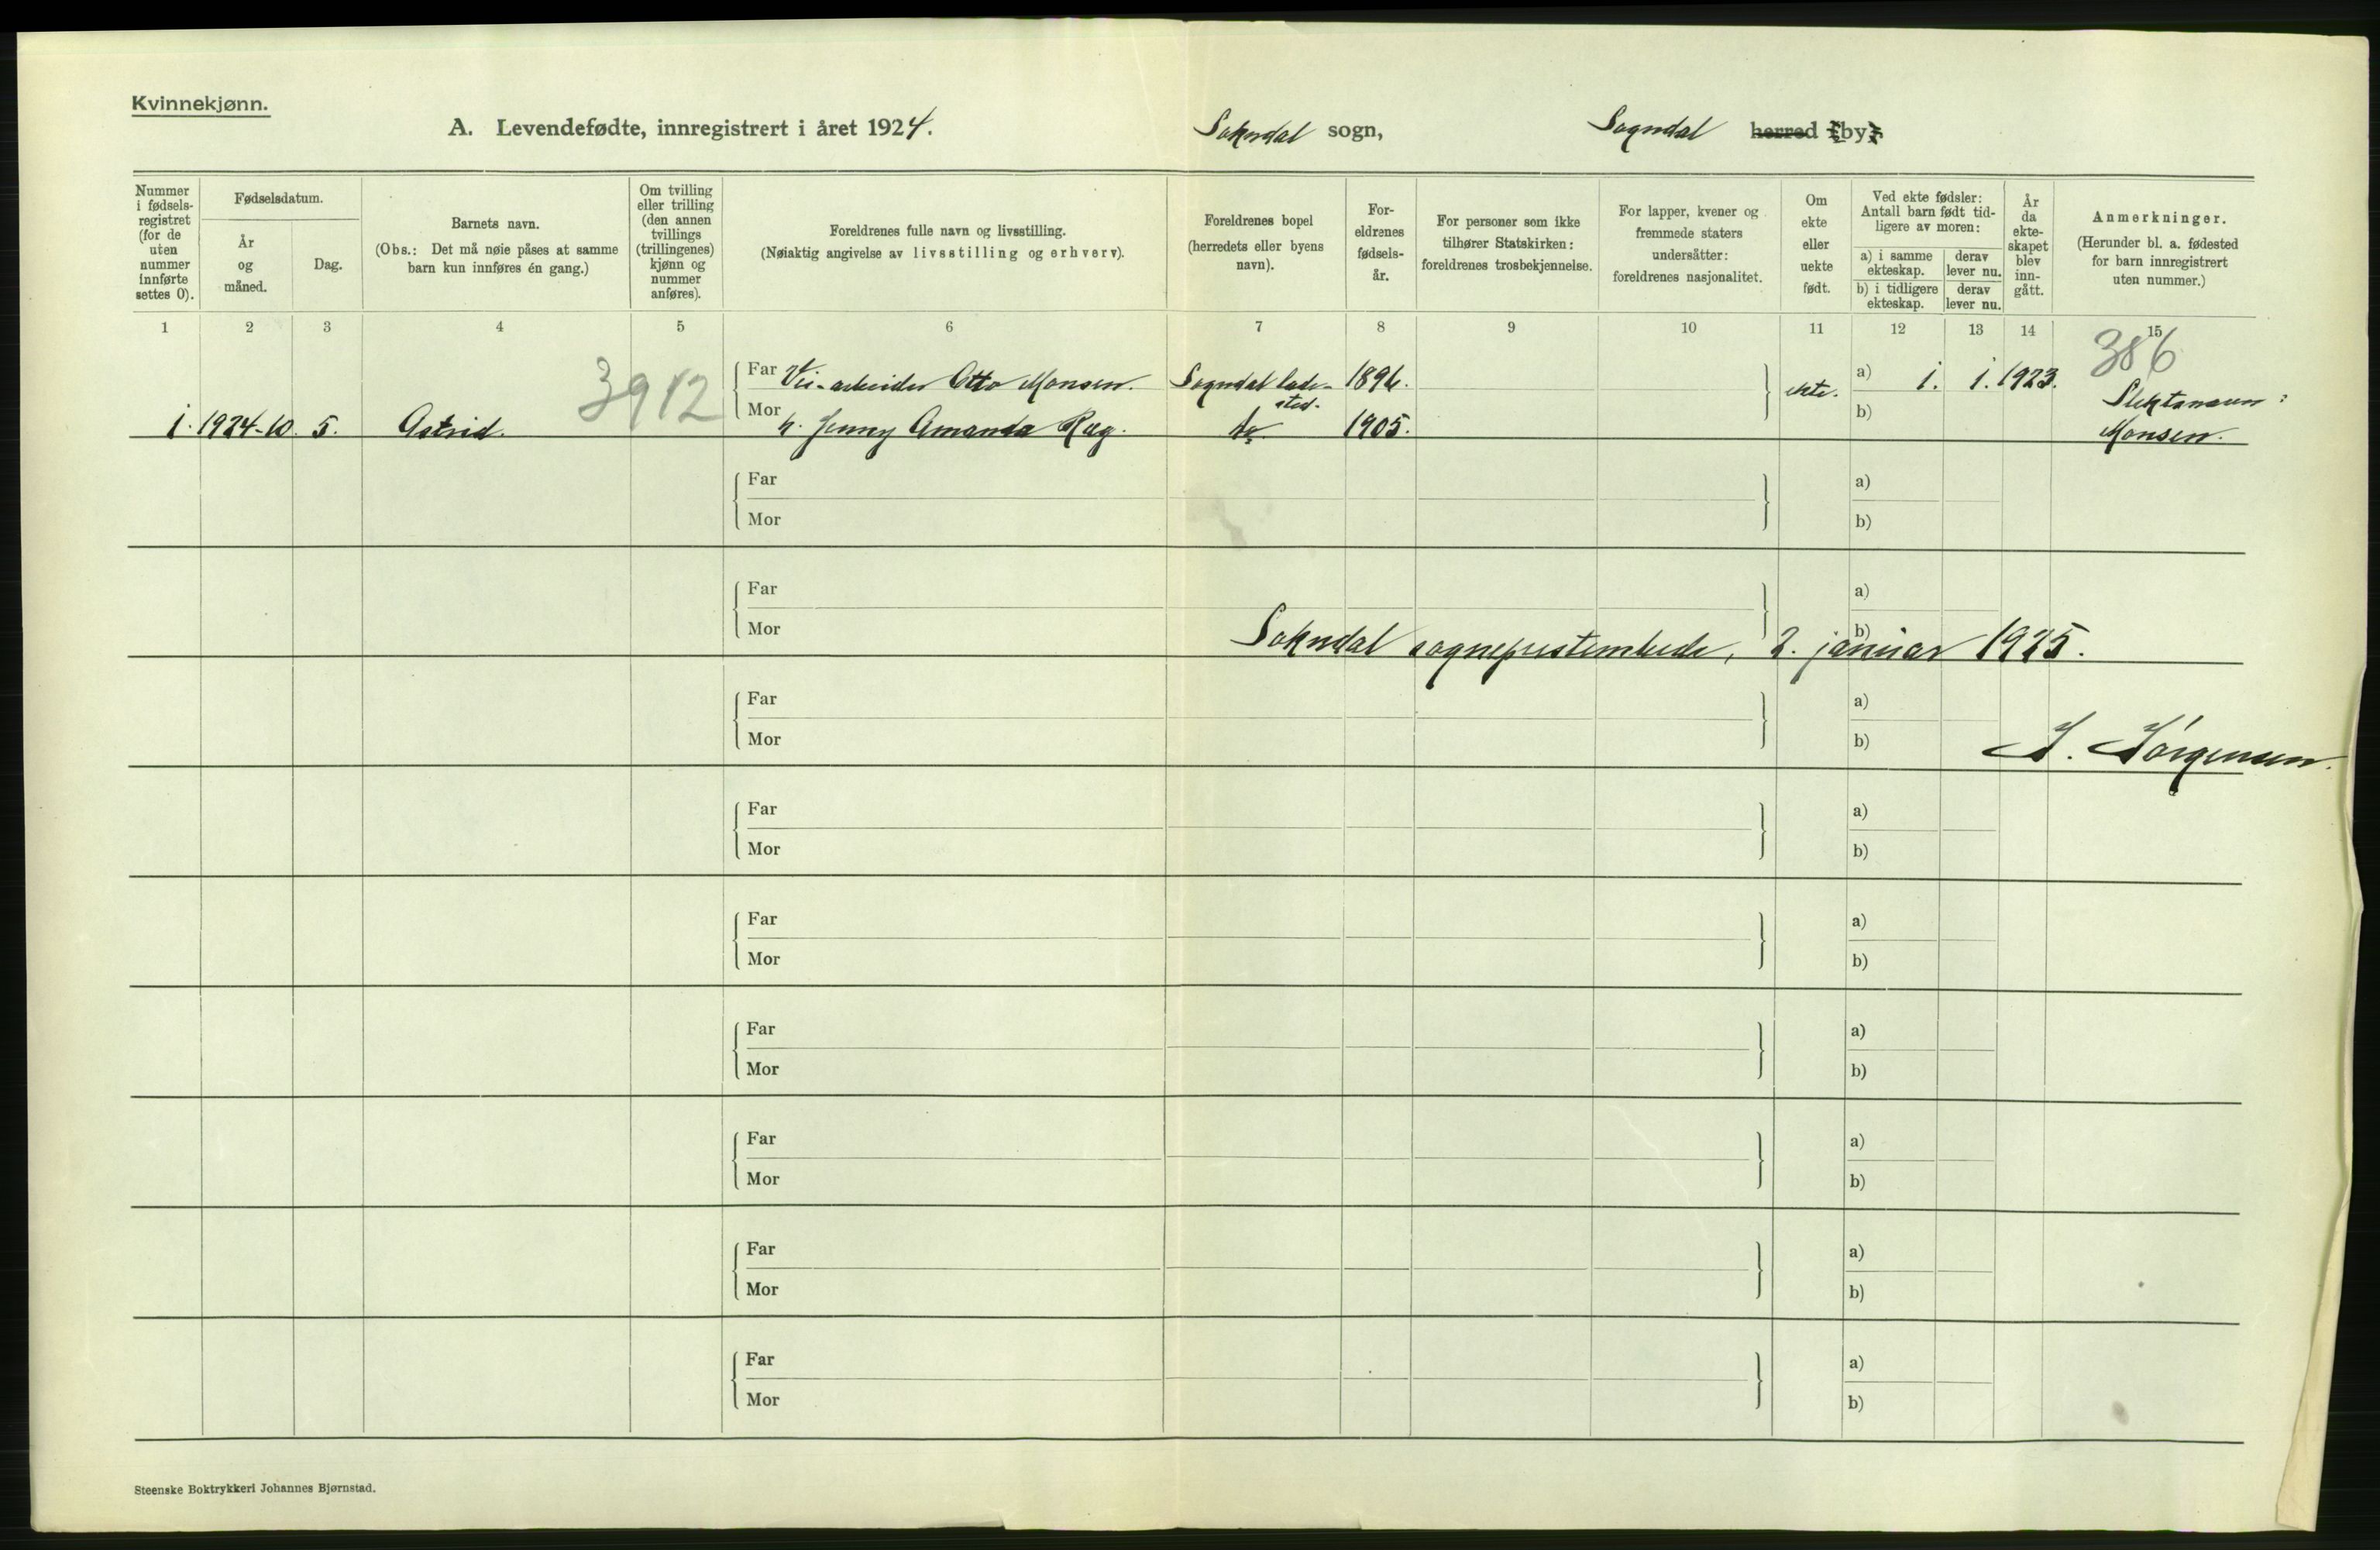 Kvinnekjønn.
A. Levendefødte, innregistrert i året 1924. Sokndal sogn, Sogndal herred (by).
Nummer i fødsels-registret (for de uten nummer innførte settes 0).
Fødselsdatum.
År og måned.
Dag.
Barnets navn.
(Obs.: Det må nøie påses at samme barn kun innføres én gang.)
Om tvilling eller trilling (den annen tvillings (trillingenes) kjønn og nummer anføres).
Foreldrenes fulle navn og livsstilling.
(Nøiaktig angivelse av livsstilling og erhverv).
Foreldrenes bopel (herredets eller byens navn).
For-eldrenes fødsels-år.
For personer som ikke tilhører Statskirken: foreldrenes trosbekjennelse.
For lapper, kvener og fremmede staters undersåtter: foreldrenes nasjonalitet.
Om ekte eller uekte født.
Ved ekte fødsler: Antall barn født tid-ligere av moren:
a) i samme ekteskap. derav lever nu.
b) i tidligere ekteskap. derav lever nu.
År da ekte-skapet blev inn-gått.
Anmerkninger.
(Herunder bl. a. fødested for barn innregistrert uten nummer.)
1 2 3 4 5 6 7 8 9 10 11 12 13 14 15
3912 386
Far Vei-arbeider Otto Monsen. Sogndal lade-sted. 1896. ekte. a) 1. 1. 1923. Slektsnavn:
1. 1924-10. 5. Astrid. Mor h. Jenny Amanda do 1905. b) Monsen.
Far a)
Mor b)
Far a)
Mor b)
Sokndal sogneprestembede, 2. januar 1925.
Far a)
Mor b)
J. Jørgensen.
Far a)
Mor b)
Far a)
Mor b)
Far a)
Mor b)
Far a)
Mor b)
Far a)
Mor b)
Far a)
Mor b)
Steenske Boktrykkeri Johannes Bjørnstad.